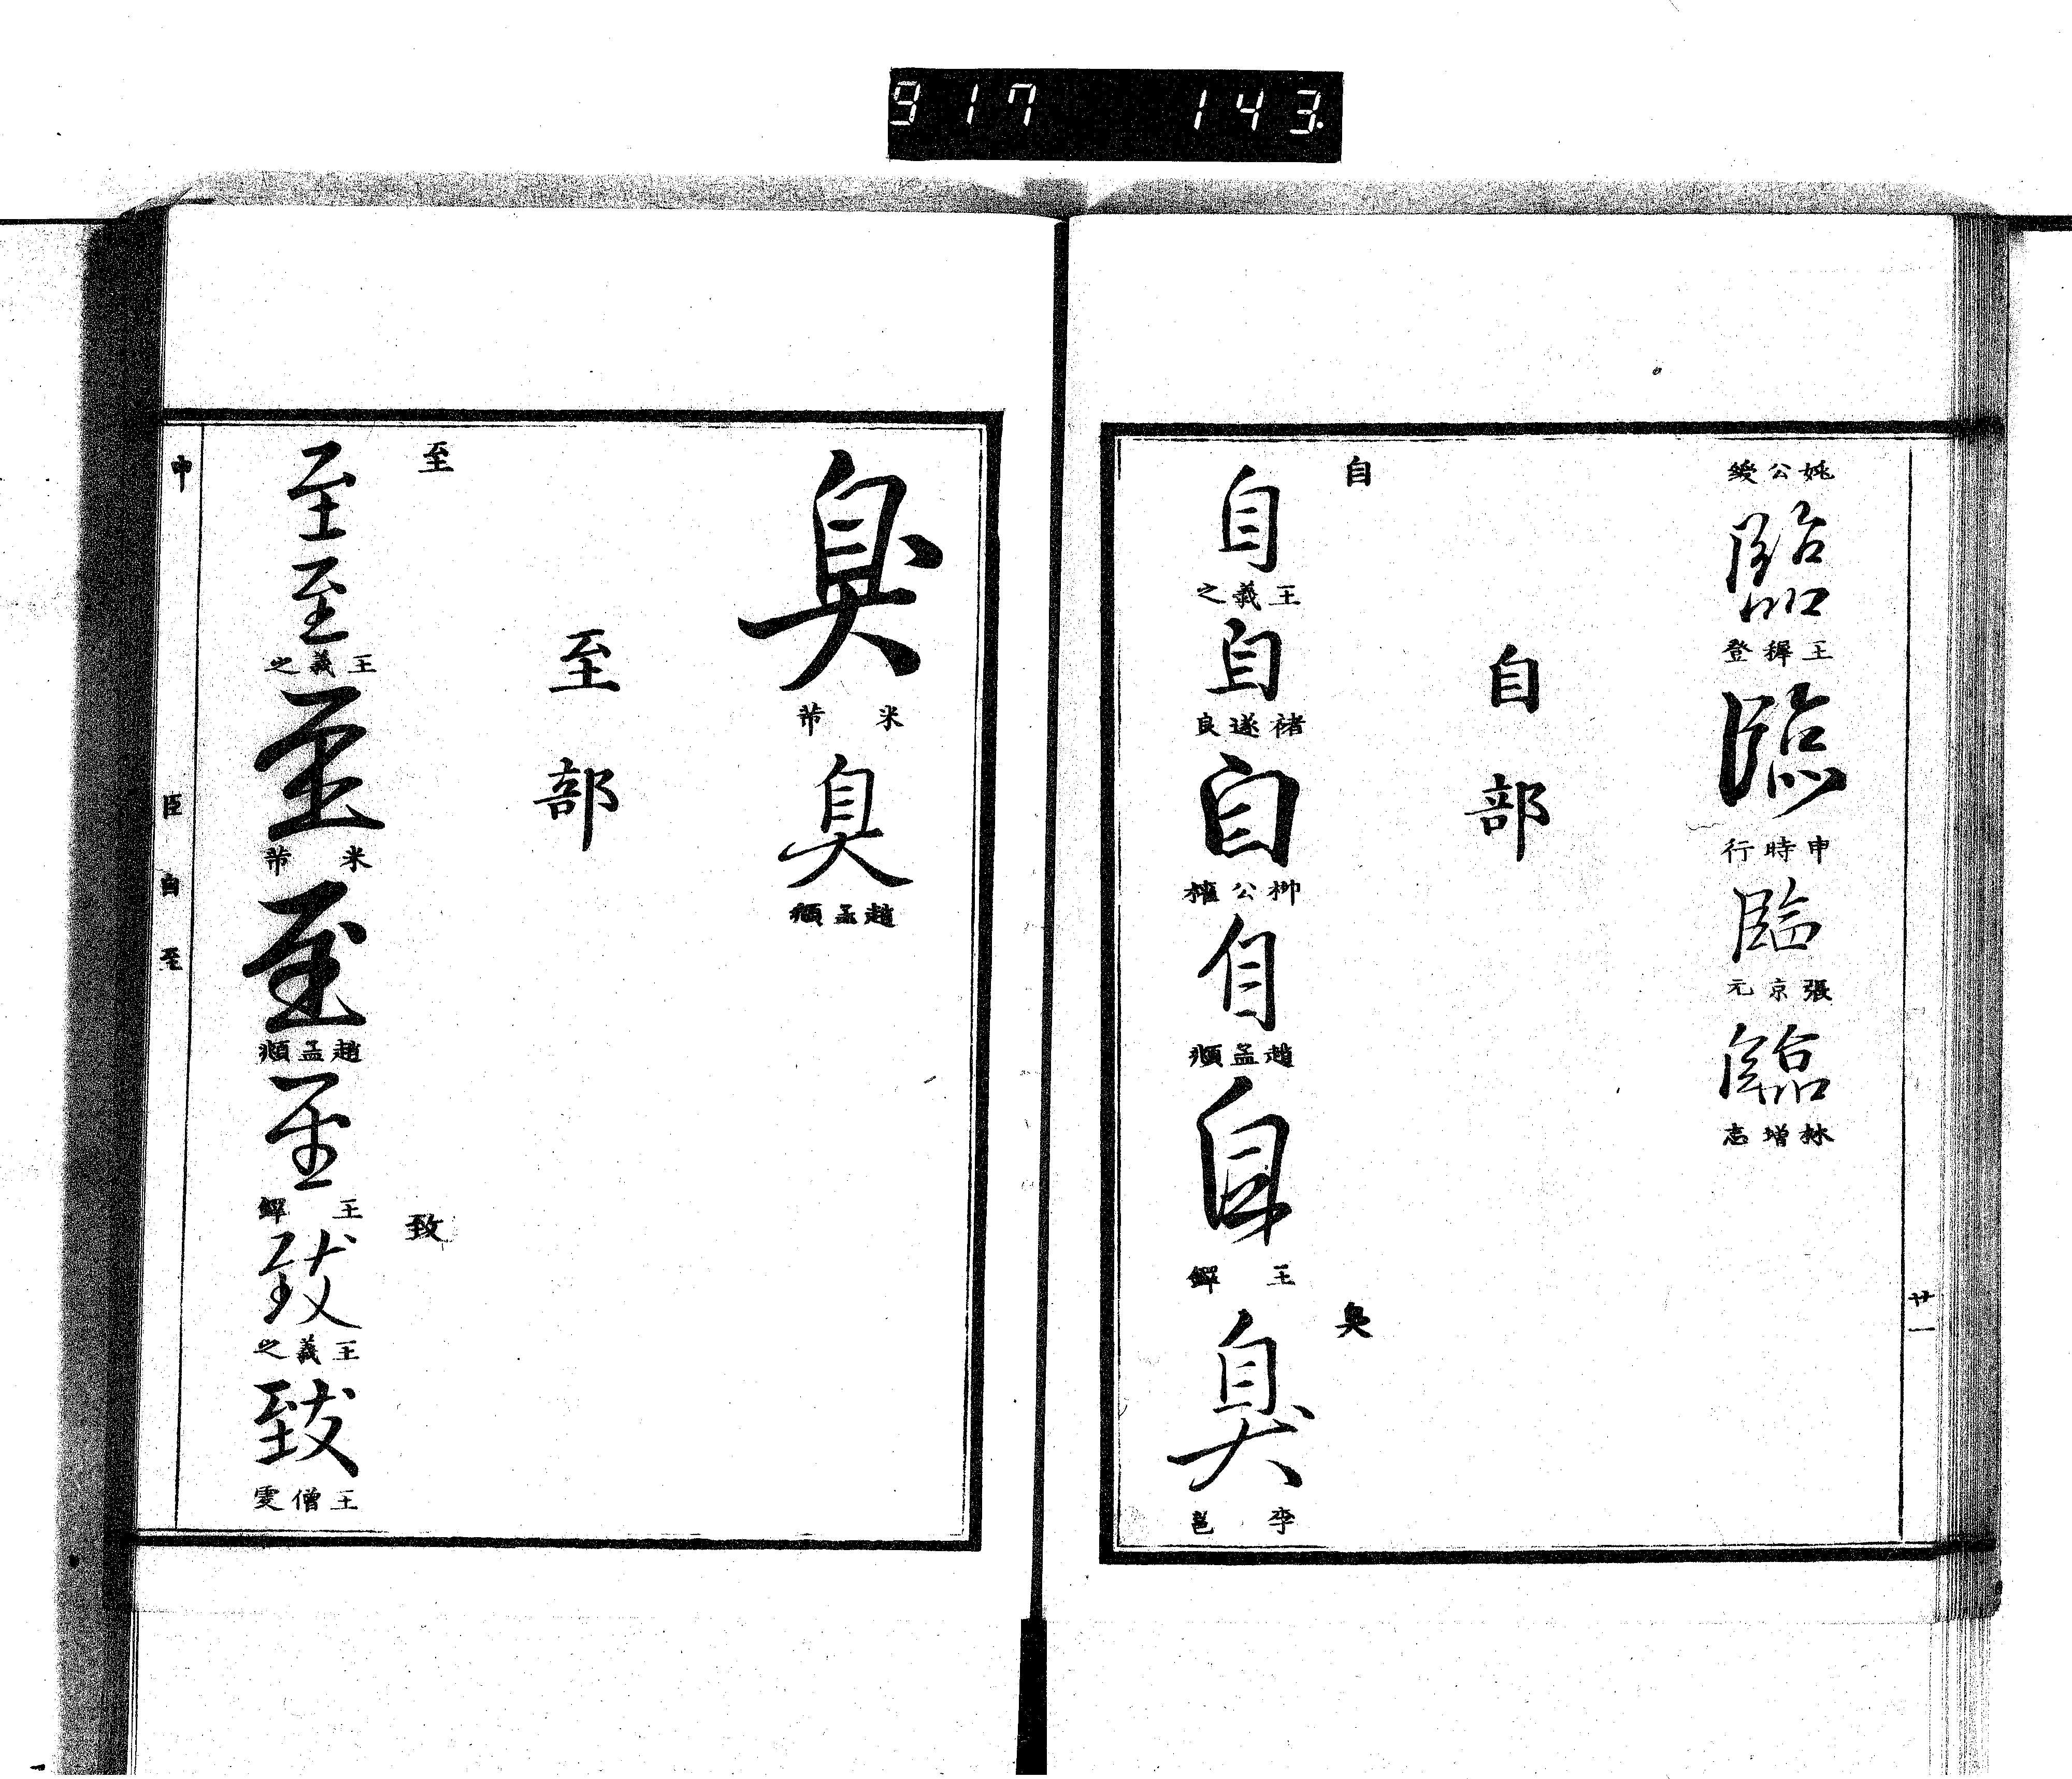 917 143.
姚公綬
臨
王穉登
臨
申時行
臨
張京元
臨
林增志
自部
自
自
王羲之
自
褚遂良
自
柳公權
自
趙孟頫
自
王鐸
臭
臭
李邕
廿一
臭
米芾
臭
趙孟頫
至部
至
至
至
王羲之
至
米芾
至
趙孟頫
至
王鐸
致
致
王羲之
致
王僧虔
申
臣自至